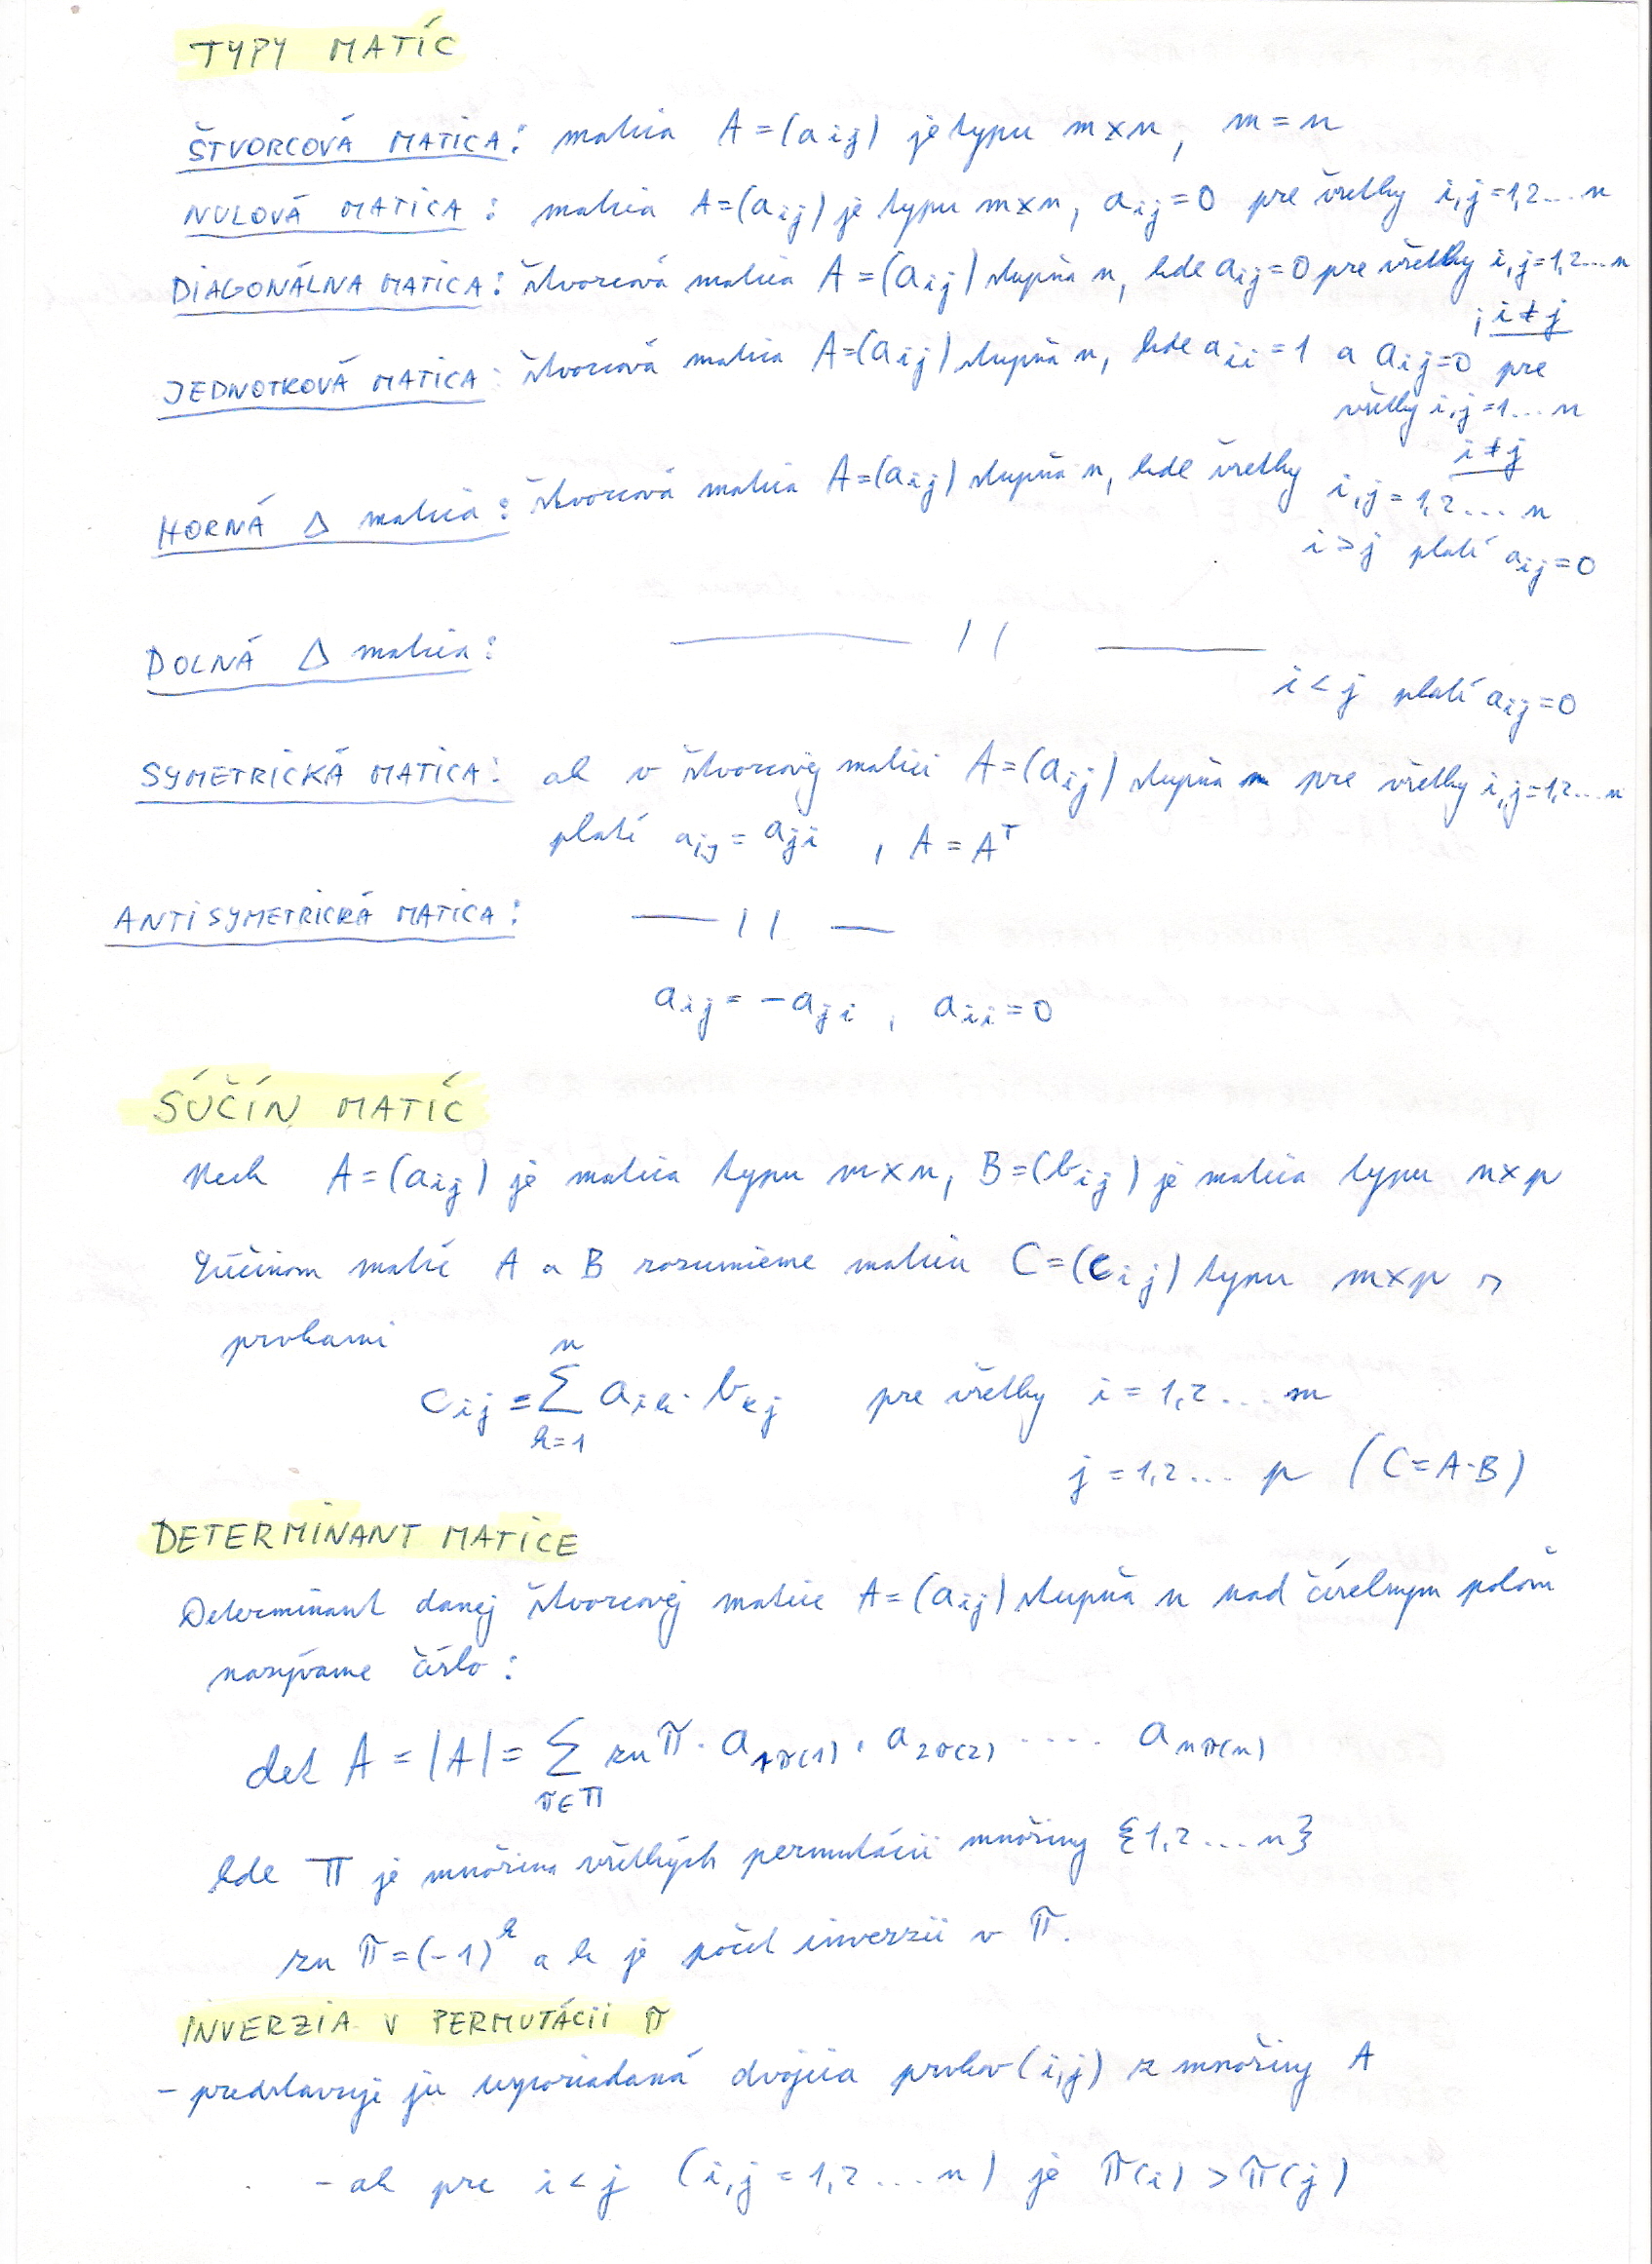 TYPY MATÍC
ŠTVORCOVÁ MATICA: matica A=(aij) je typu m×n, m=n
NULOVÁ MATICA: matica A=(aij) je typu m×n, aij=0 pre všetky i,j=1,2...n
DIAGONÁLNA MATICA: štvorcová matica A=(aij) stupňa n, kde aij=0 pre všetky i,j=1,2...n
; i≠j
JEDNOTKOVÁ MATICA: štvorcová matica A=(aij) stupňa n, kde aii=1 a aij=0 pre
všetky i,j=1...n
i≠j
HORNÁ Δ matica: štvorcová matica A=(aij) stupňa n, kde všetky i,j=1,2...n
i>j platí aij=0
DOLNÁ Δ matica: —— // ——
i<j platí aij=0
SYMETRICKÁ MATICA: ak v štvorcovej matici A=(aij) stupňa n pre všetky i,j=1,2...n
platí aij=aji , A=A^T
ANTISYMETRICKÁ MATICA: — // —
aij=-aji , aii=0
SÚČIN MATÍC
Nech A=(aij) je matica typu m×n, B=(bij) je matica typu n×p
Súčinom matíc A a B rozumieme maticu C=(cij) typu m×p s
prvkami
cij = Σ_{k=1}^{n} aik·bkj pre všetky i=1,2...m
j=1,2... p (C=A·B)
DETERMINANT MATICE
Determinant danej štvorcovej matice A=(aij) stupňa n nad číselným poľom
nazývame číslo:
det A = |A| = Σ_{π∈Π} zn π · a1π(1) · a2π(2) .... anπ(n)
kde Π je množina všetkých permutácií množiny {1,2...n}
zn π=(-1)^k a k je počet inverzií v π.
INVERZIA V PERMUTÁCII π
- predstavuje ju usporiadaná dvojica prvkov (i,j) z množiny A
- ak pre i<j (i,j=1,2...n) je π(i)>π(j)